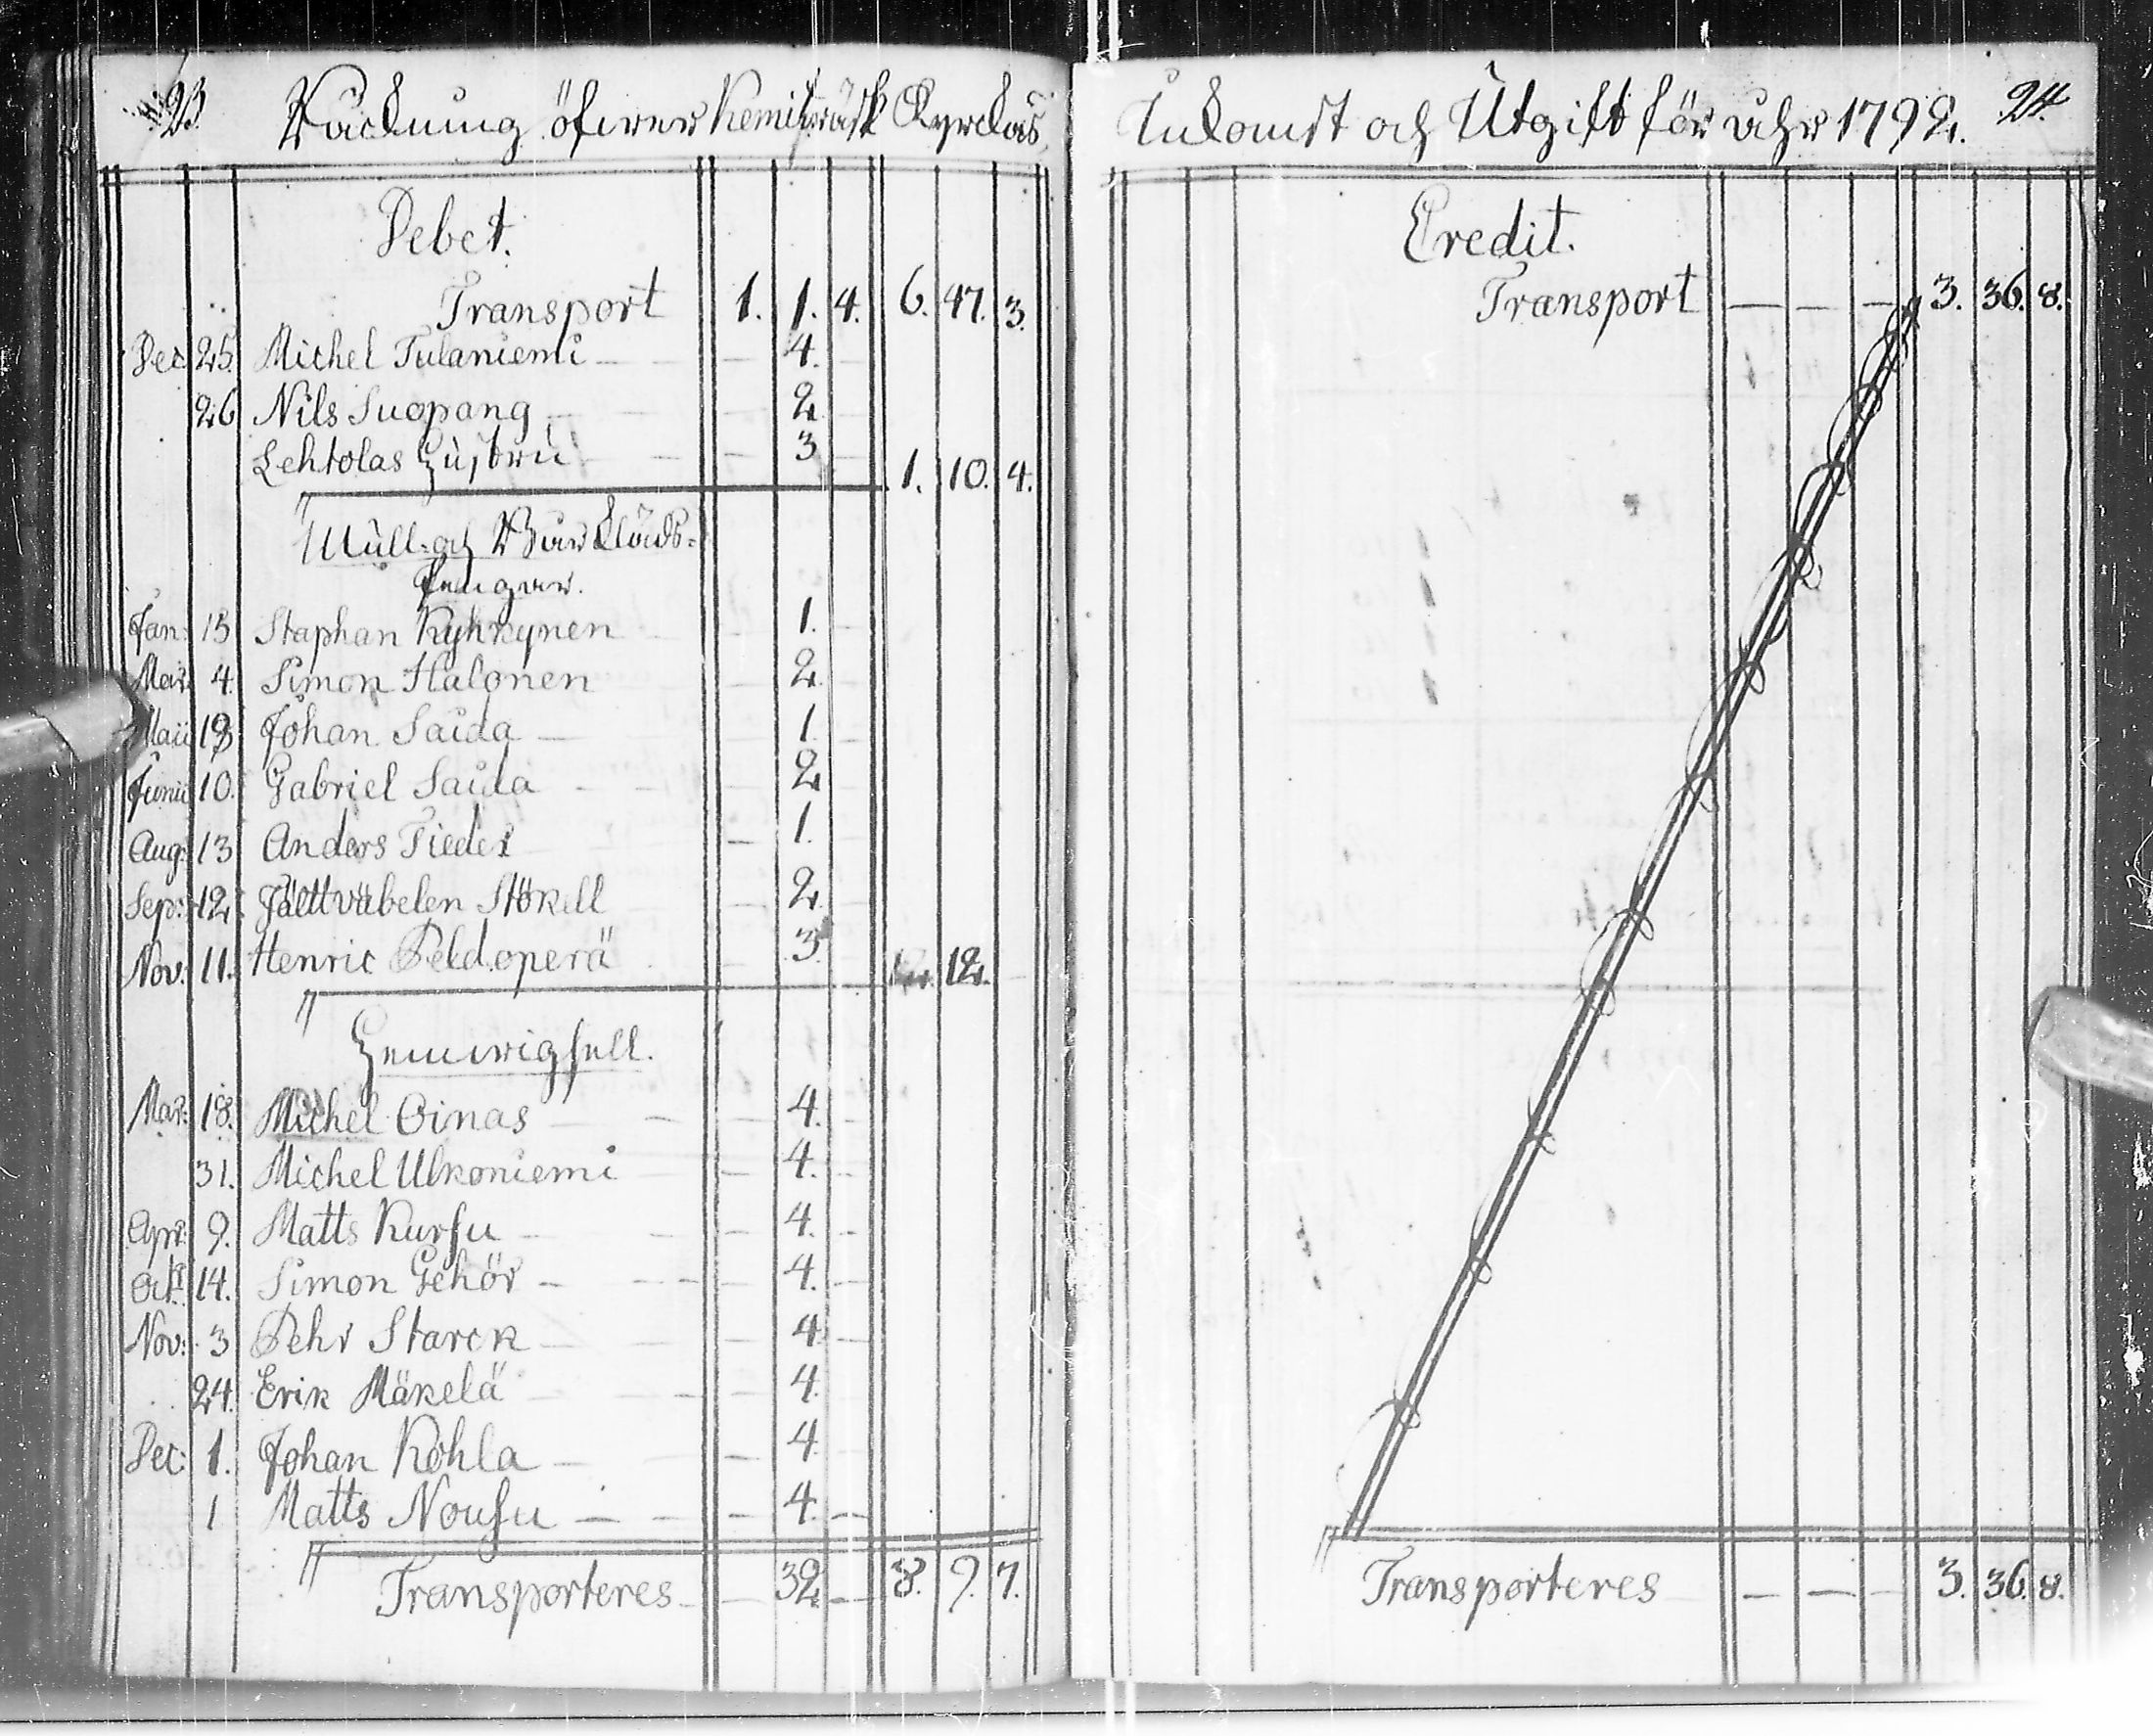 23. Räckning öfwer Kemiträsk Kyrckas
Debet.
Transport 1. 1. 4. 6. 47. 3.
Dec 25. Michel Tulaniemi — — 4. —
26 Nils Suopang — — — 2 —
Lehtolas Hustru — — 3 — 1. 10. 4.
Mull- och Bårklädes-
Pengar.
Jan: 15 Staphan Kyhkynen — 1. —
Mar: 4. Simon Halonen — 2. —
Maii 13 Johan Saida — 1.
Junii 10. Gabriel Saida — — 2
Aug: 13 Anders Fieder — 1.
Sep: 12. Fältväbelen Stökell — 2. —
Nov: 11. Henric Peldoperä — 3. 12. —
Hemwigsell.
Mar: 18. Michel Oinas — — 4. —
31. Michel Ulkoniemi — 4. —
Apr: 9. Matts Kursu — — — 4. —
Oct: 14. Simon Gehör — — — 4. —
Nov: 3 Pehr Starck — — — 4. —
24. Erik Mäkelä — — — 4.
Dec: 1. Johan Kohla — — 4.
1 Matts Nousu — — — 4. —
Transporteres — 32 — 8. 9. 7.
Inkomst och Utgift för åhr 1792. 24.
Credit.
Transport — — — 3. 36. 8.
Transporteres — — — 3. 36. 8.